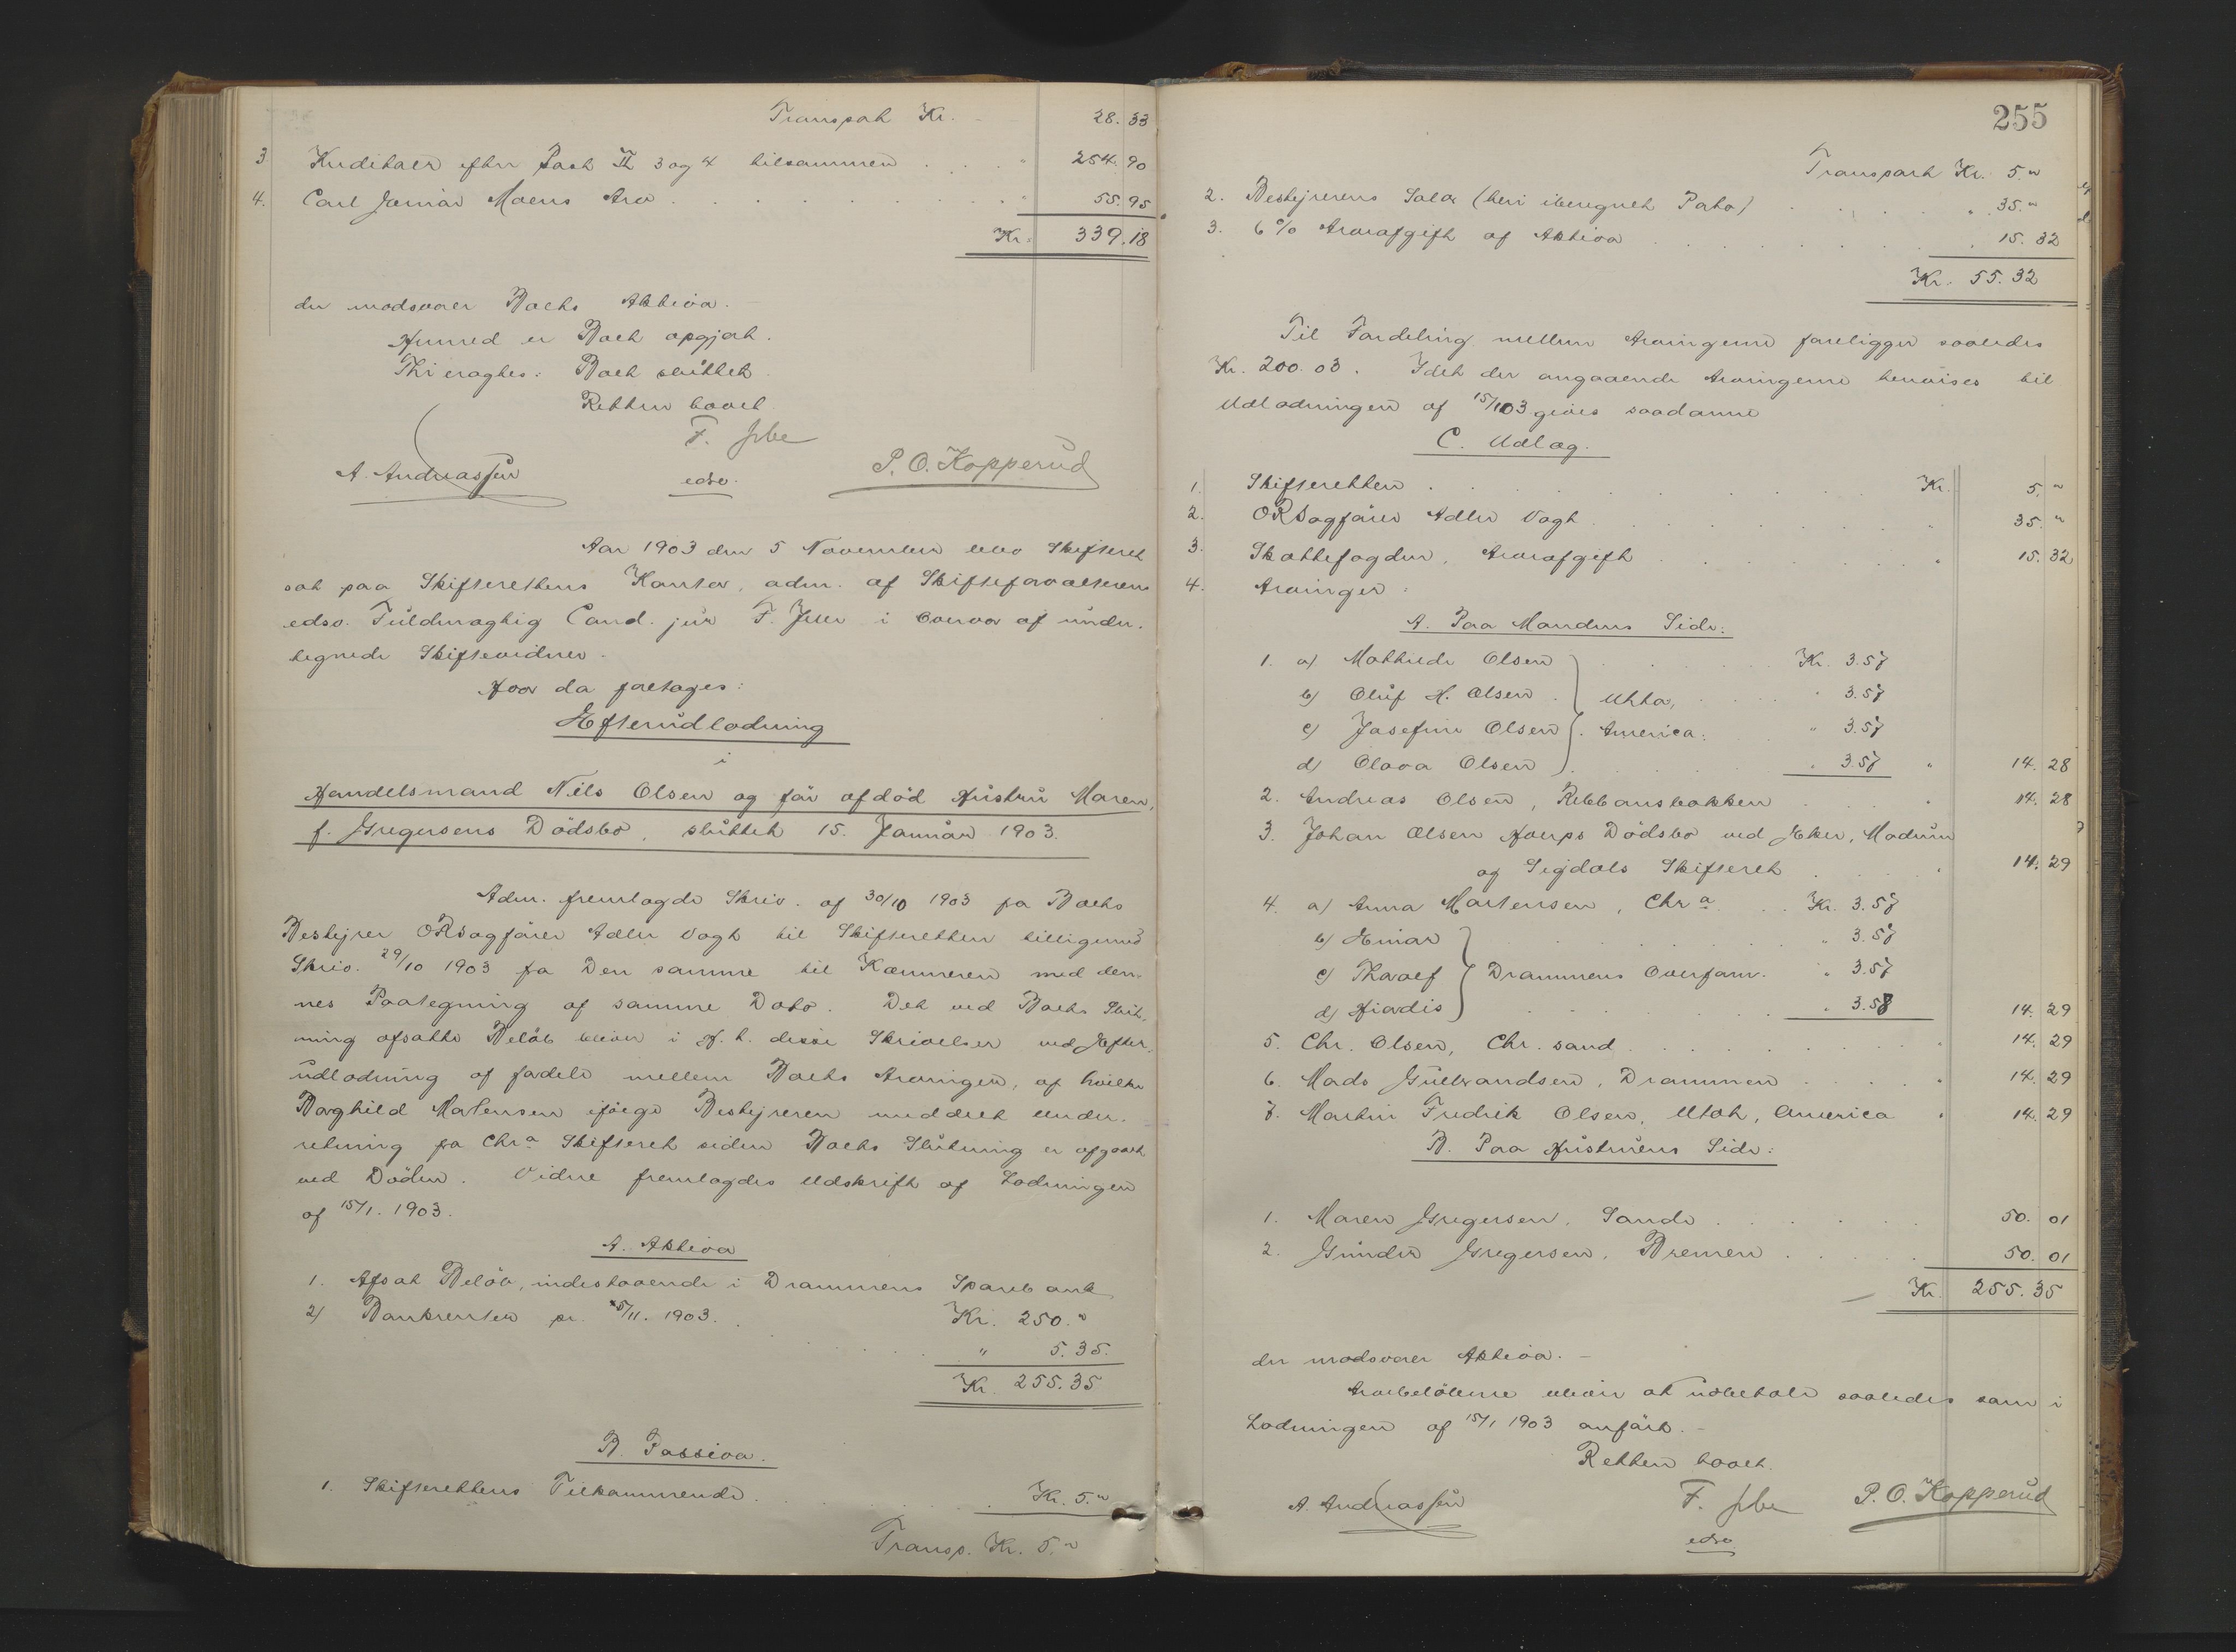 Transport Kr. 28.33
3. Kreditorer efter Post II 3 og 4 tilsammen . . . " 254.90
4. Carl Januar Moens Arv . . . " 55.95
Kr. 339.18
der modsvarer Boets Aktiva.
Hermed er Boet opgjort.
Thi eragtes: Boet sluttet.
Retten hævet
F. Ibe
A. Andreassen edsv. P. O. Kopperud
Aar 1903 den 5 November blev Skifteret
sat paa Skifterettens Kontor, adm. af Skifteforvalterens
edsv. Fuldmægtig Cand. jur F. Ibe i Overvær af under-
tegnede Skiftevidner.
Hvor da foretages:
Efterudlodning
i
Handelsmand Nils Olsen og før afdöd Hustru Maren,
f. Gregersens Dödsbo, sluttet 15. Januar 1903.
Adm. fremlagde Skriv. af 30/10 1903 fra Boets
Bestyrer ORSagförer Adler Vogt til Skifteretten tilligemed
Skriv. 29/10 1903 fra Den samme til Kæmneren med den-
nes Paategning af samme Dato. Det ved Boets Slut-
ning afsatte Belöb bliver i H. t. disse Skrivelser ved Efter-
udlodning at fordele mellem Boets Arvinger, af hvilke
Borghild Martensen ifölge Bestyreren meddelt Under-
retning fra Chra Skifteret siden Boets Slutning er afgaaet
ved Döden. Videre fremlagdes Udskrift af Lodningen
af 15/1. 1903.
A. Aktiva
1. Afsat Belöb, indestaaende i Drammens Sparebank
2) Bankrenter pr. 5/11. 1903. . Kr. 250."
" 5.35.
Kr. 255.35
B. Passiva.
1. Skifterettens Tilkommende . . . Kr. 5."
Transp. Kr. 5."
255
Transport Kr. 5."
2. Bestyrerens Salær (heri iberegnet Porto) . . . " 35."
3. 6% Arveafgift af Aktiva . . . " 15.32
Kr. 55.32
Til Fordeling mellem Arvingerne foreligger saaledes
Kr. 200.03. Idet der angaaende Arvingerne henvises til
Udlodningen af 15/1 03 gives saadanne
C. Udlæg.
1. Skifteretten . . . Kr. 5."
2. ORSagförer Adler Vogt . . . " 35."
3. Skattefogden, Arveafgift . . . " 15.32
4. Arvinger:
A. Paa Mandens Side:
1. a) Mathilde Olsen . . . Kr. 3.57
b) Oluf H. Olsen . Utha, . . " 3.57
c) Josefine Olsen . America. . . " 3.57
d) Olava Olsen . . . " 3.57 " 14.28
2. Andreas Olsen, Rebbansbakken . . . " 14.28
3. Johan Olsen Horps Dödsbo ved Eker, Modum
og Sigdals Skifteret . . . " 14.29
4. a) Anna Martensen, Chra . . Kr. 3.57
b) Einar . . . " 3.57
c) Thoralf Drammens Overform. " 3.57
d) Hjørdis . . . " 3.58 14.29
5. Chr. Olsen, Chr.sand . . . " 14.29
6. Mads Gulbrandsen, Drammen . . . " 14.29
7. Martin Fredrik Olsen, Utah, America " 14.29
B. Paa Hustruens Side:
1. Maren Gregersen, Sande . . . 50.01
2. Gunder Gregersen, Bremen . . . 50.01
Kr. 255.35
der modsvarer Aktiva.
Arvebelöbene bliver at udbetale saaledes som i
Lodningen af 15/1 1903 anfört.
Retten hævet.
A. Andreassen F. Ibe P. O. Kopperud
edsv